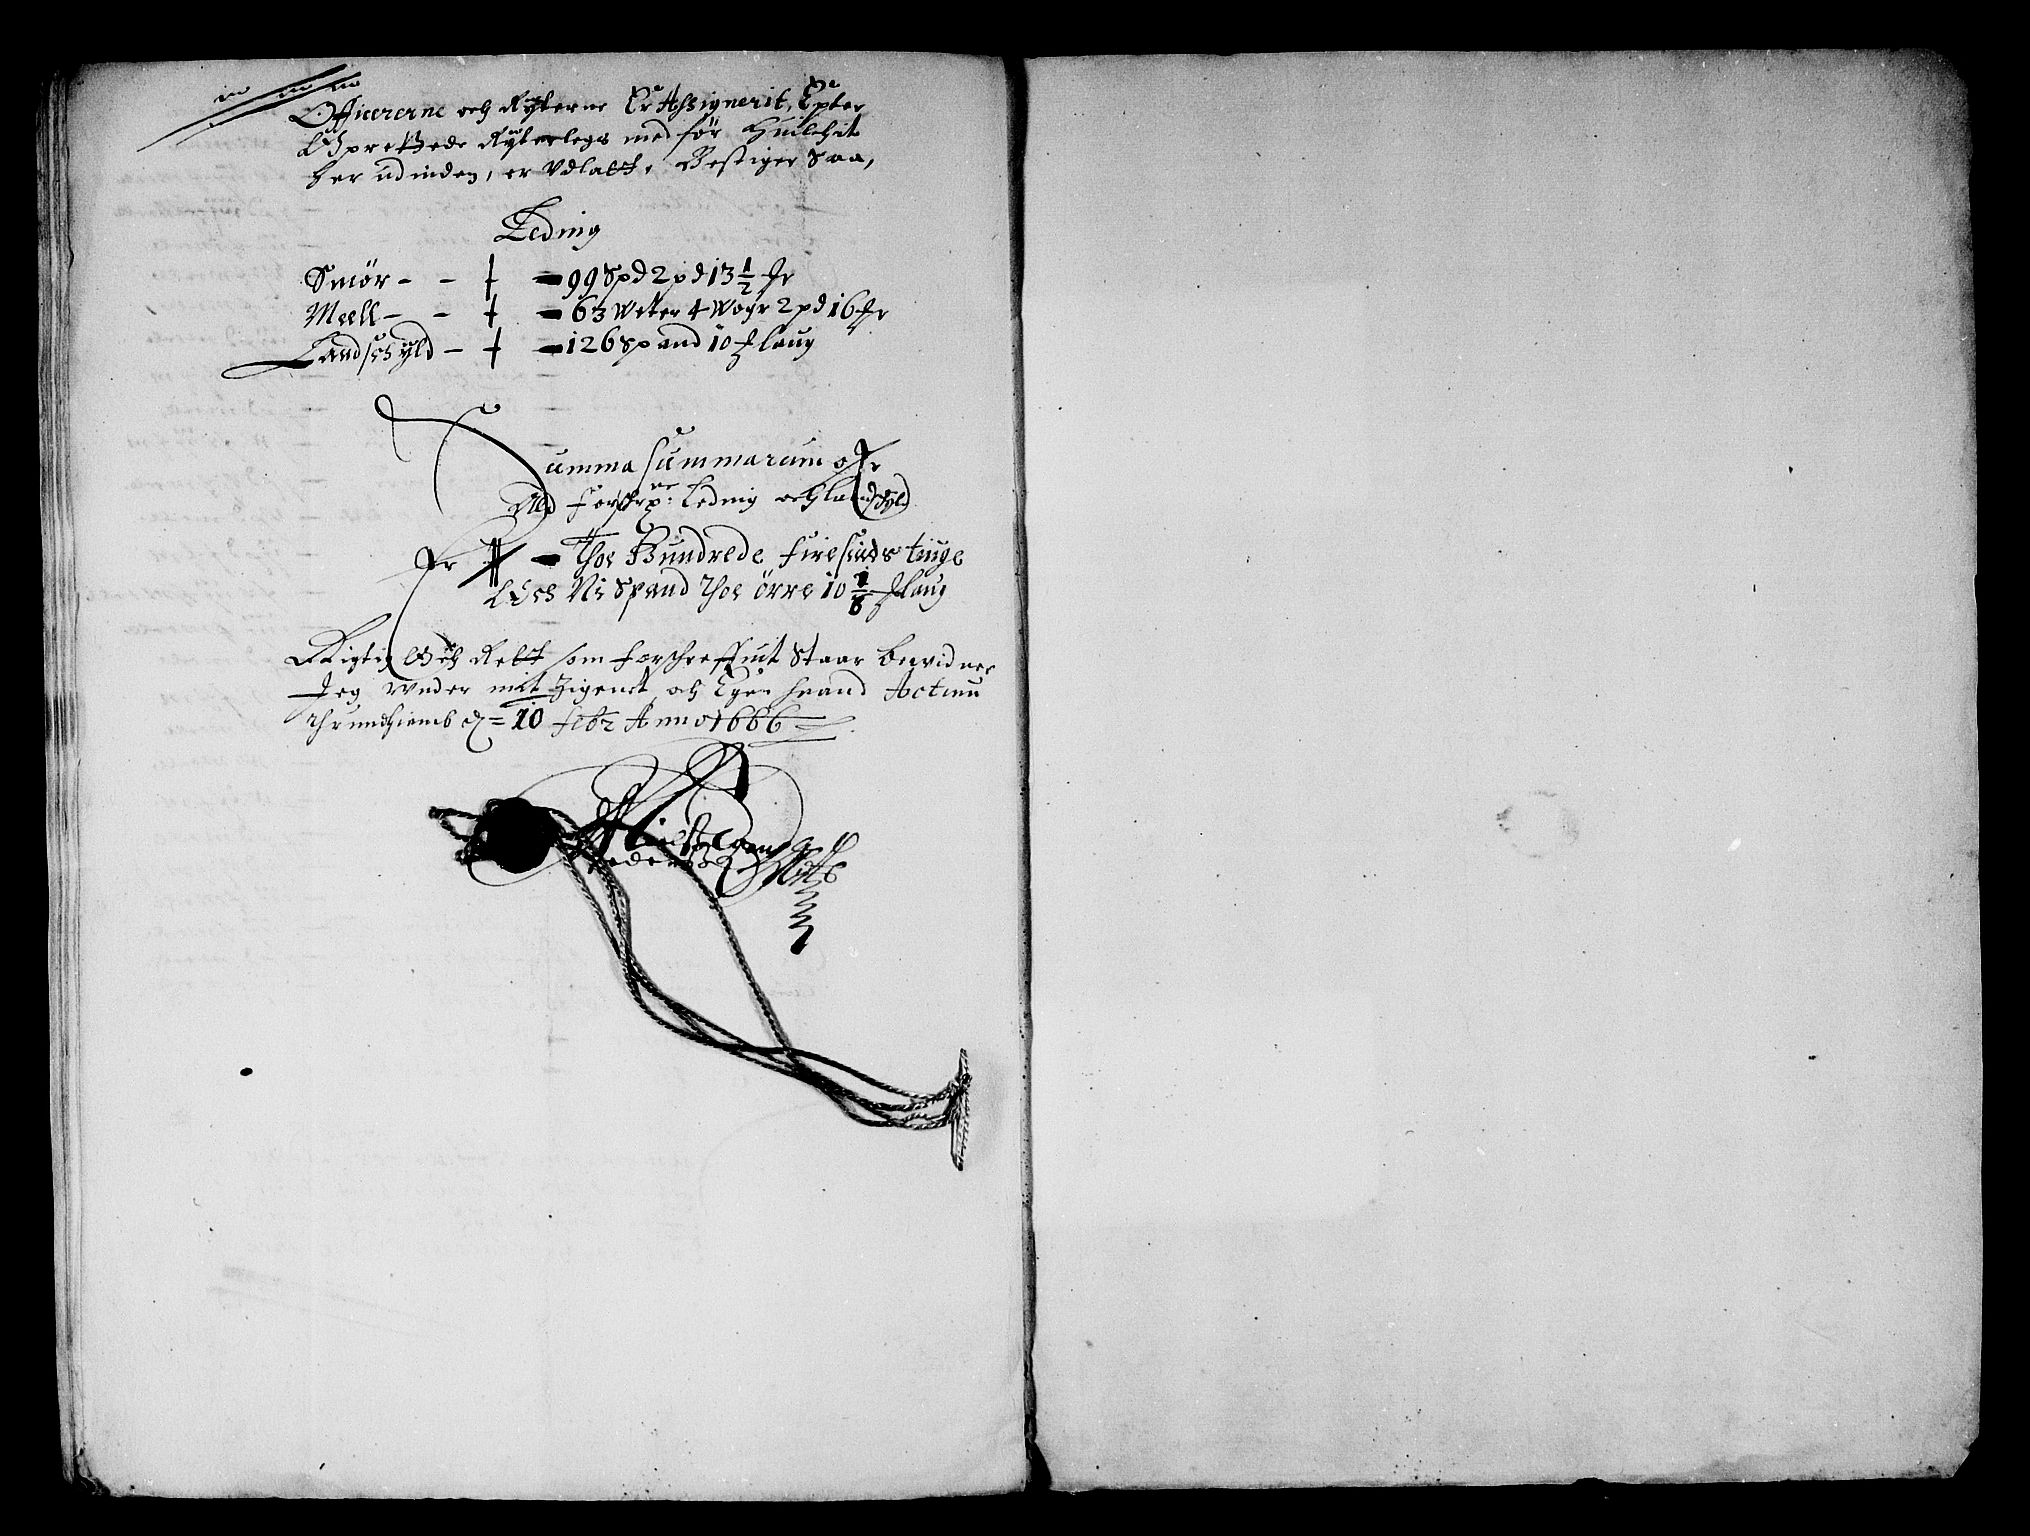 Officererne och Rÿterne Er Assignerit, Epter
Oprettede Rÿterlegs med før Huilchit
her udinden, er Vdlatt, Bestiger Saa,
Leding
Smør - - ┼ - 99 Spd 2 pd 13 1/2 ℔r
Meell - - ┼ - 63 Weter 4 Wogr 2 pd 16 ℔r
Landschÿld - ┼ - 126 Spand 10 ℔laug
Summa summarum ofr
Ald forschrne: Leding och landschyld
Er - Thoe Hundrede firesinds tiuge
Och Ni Spand Thoe örre 10 1/8 ℔laug
Rigtig Och Rett som forschreffuit Staar bewidner
Jeg vnder mit Zigenet och Egen haand Actum
Thrundhiemb d = 10 febr Anno 1666